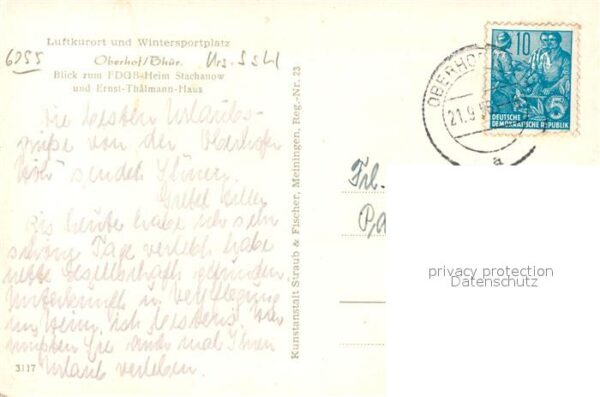 Luftkurort und Wintersportplatz
6055
Oberhof/Thür.
Blick zum FDGB-Heim Stachanow
und Ernst-Thälmann-Haus
Die besten Urlaubs-
grüße von der Oberhofer
sendet Ihnen
Gretel
Bis heute habe ich sehr
schöne Tage verlebt, habe
nette Gesellschaft gefunden.
Unterkunft u. Verpflegung
im Heim ist bestens.
müßten Sie auch mal Ihren
Urlaub verleben.
3117
Kunstanstalt Straub & Fischer, Meiningen, Reg.-Nr. 23
OBERHO
21.9
a
10
5
DEUTSCHE
DEMOKRATISCHE REPUBLIK
Frl.
privacy protection
Datenschutz